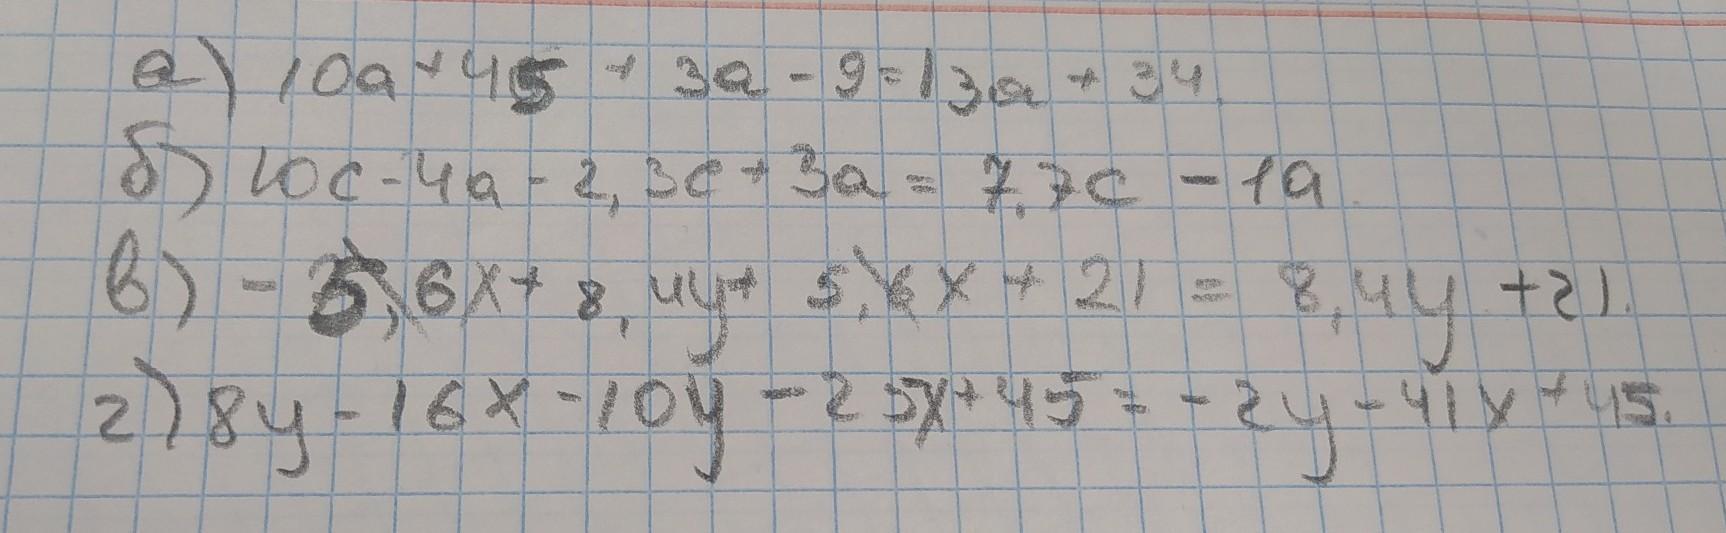 а) 10a+45 + 3a - 9=13a + 34.
б) 10c-4a-2,3c+3a= 7,7c - 1a.
в) - 5,6x+ 8,4y+ 5,6x + 21 = 8,4y +21.
г) 8y-16x-10y-25x+45=-2y-41x+45.